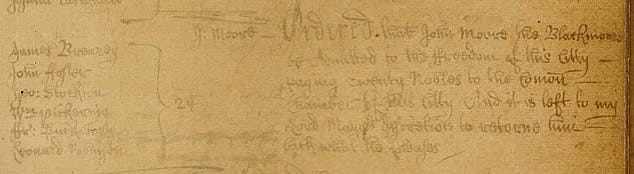 James Breardy
John
Geo: Stockton
Wm Pickering
Leonard Robinson
24
J: Moore — Ordered. that John Moore the Blackmoore
be Admitted to the ffreedom of this Citty
paying twenty Nobles to the Comon
Chamber of this Citty And it is left to my
Lord Mayors discretion to returne him
back what he pleases